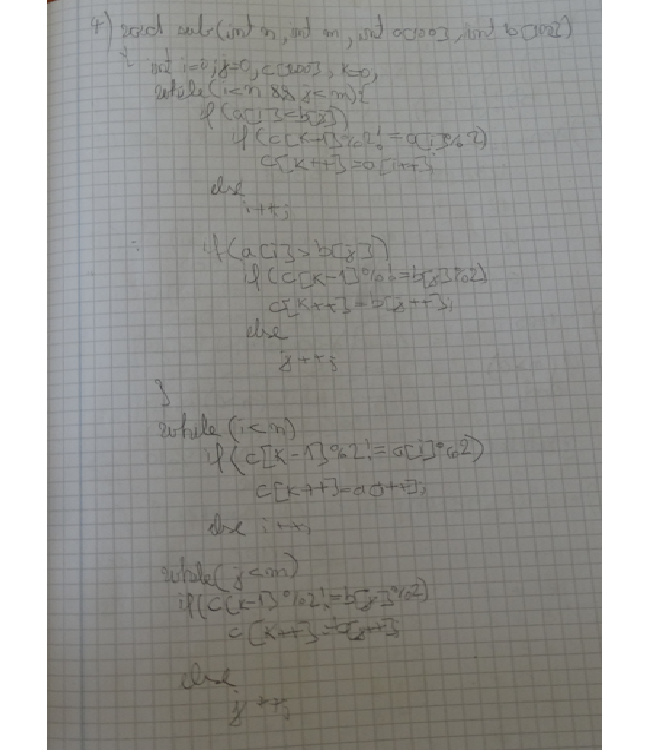 4) void sub(int n, int m, int a[100], int b[100])
{ int i=0, j=0, c[200], k=0;
while(i<n && j<m){
if(a[i]<b[j])
if(c[k-1]%2!=a[i]%2)
c[k++]=a[i++];
else
i++;
if(a[i]>b[j])
if(c[k-1]%!=b[j]%2)
c[k++]=b[j++];
else
j++;
}
while(i<n)
if(c[k-1]%2!=a[i]%2)
c[k++]=a[i++];
else i++;
while(j<m)
if(c[k-1]%2!=b[j]%2)
c[k++]=b[j++];
else
j++;